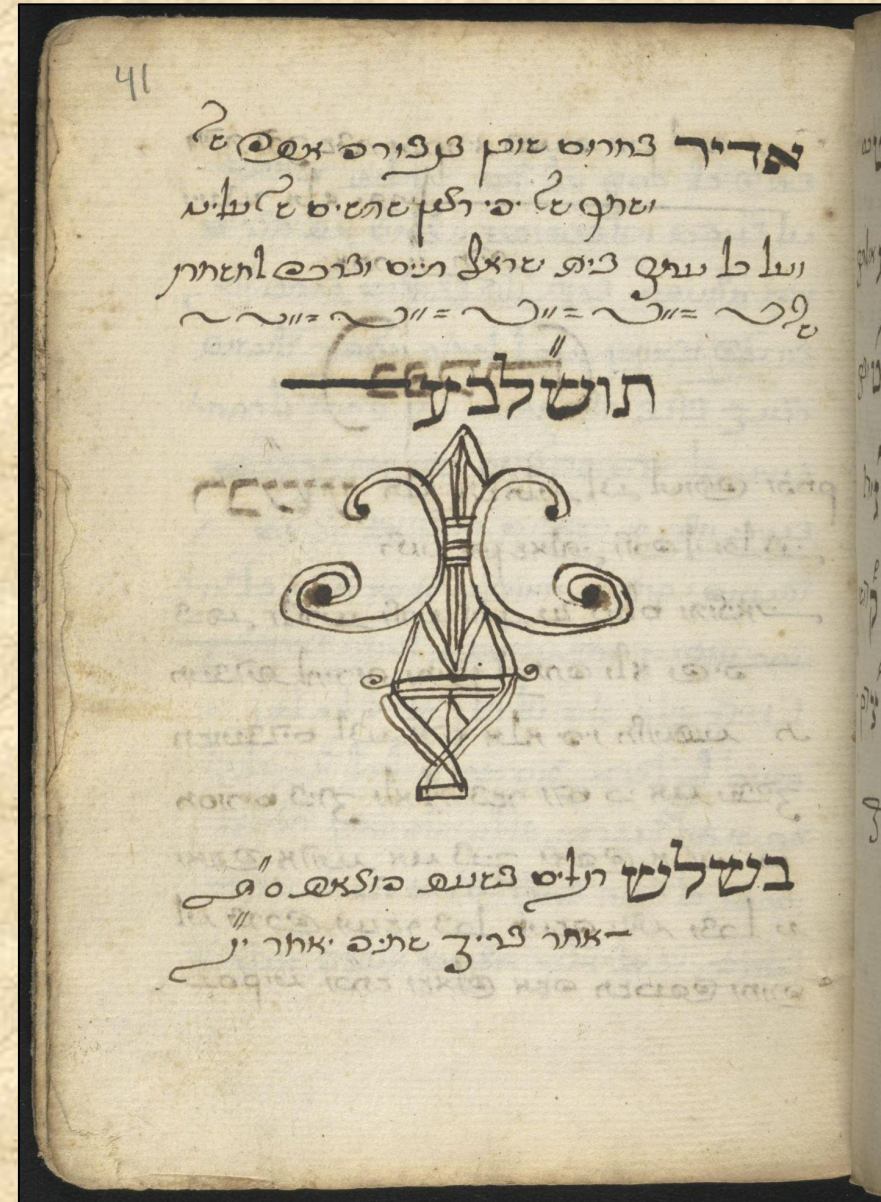 41
אדיר במרום שוכן בגבורה אתה של'
ושמך של' יהי רצון שתשים של' עלינו
ועל כל עמך בית ישראל חיים וברכה למשמרת
של'
תוש״לבע
בשלש רגלים בשעת הוצאת ס״ת
אחר בריך שמיה יאמר י״ג